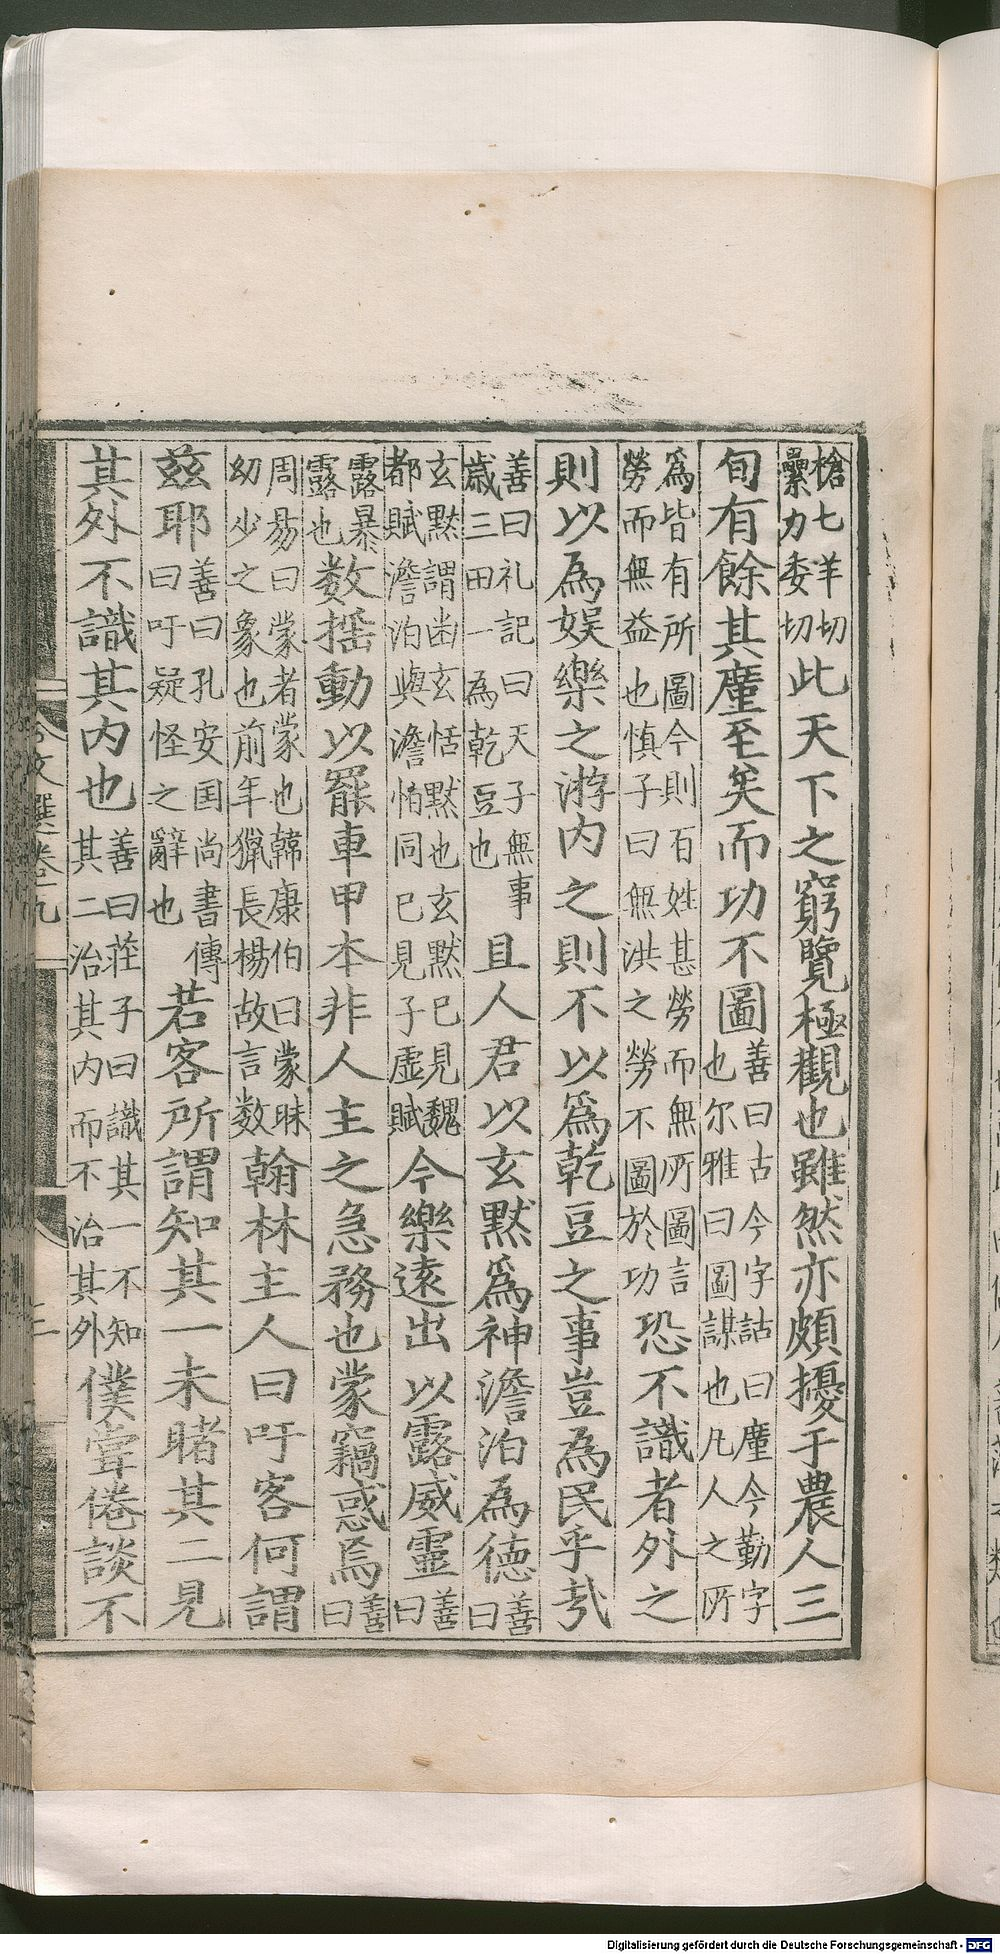 槍七羊切纍力委切此天下之窮覽極觀也雖然亦頗擾于農人三
旬有餘其廑至矣而功不圖善曰古今字詁曰廑今勤字也尔雅曰圖謀也凡人之所
爲皆有所圖今則百姓甚勞而無所圖言勞而無益也慎子曰無洪之勞不圖於功恐不識者外之
則以為娱樂之游内之則不以爲乾豆之事豈為民乎㦲
善曰礼記曰天子無事歲三田一為乾豆也且人君以玄黙爲神澹泊為德善曰
玄黙謂幽玄恬黙也玄黙已見魏都賦澹泊與澹怕同已見子虛賦今樂遠出以露威靈善曰
露暴露也数摇動以罷車甲本非人主之急務也蒙竊惑焉善曰
周昜曰蒙者蒙也韓康伯曰蒙昧幼少之象也前年獵長楊故言数翰林主人曰吁客何謂
兹耶善曰孔安国尚書傳曰吁疑怪之辭也若客所謂知其一未睹其二見
其外不識其内也善曰莊子曰識其一不知其二治其内而不治其外僕嘗倦談不
文選卷九
Digitalisierung gefördert durch die Deutsche Forschungsgemeinschaft - DFG